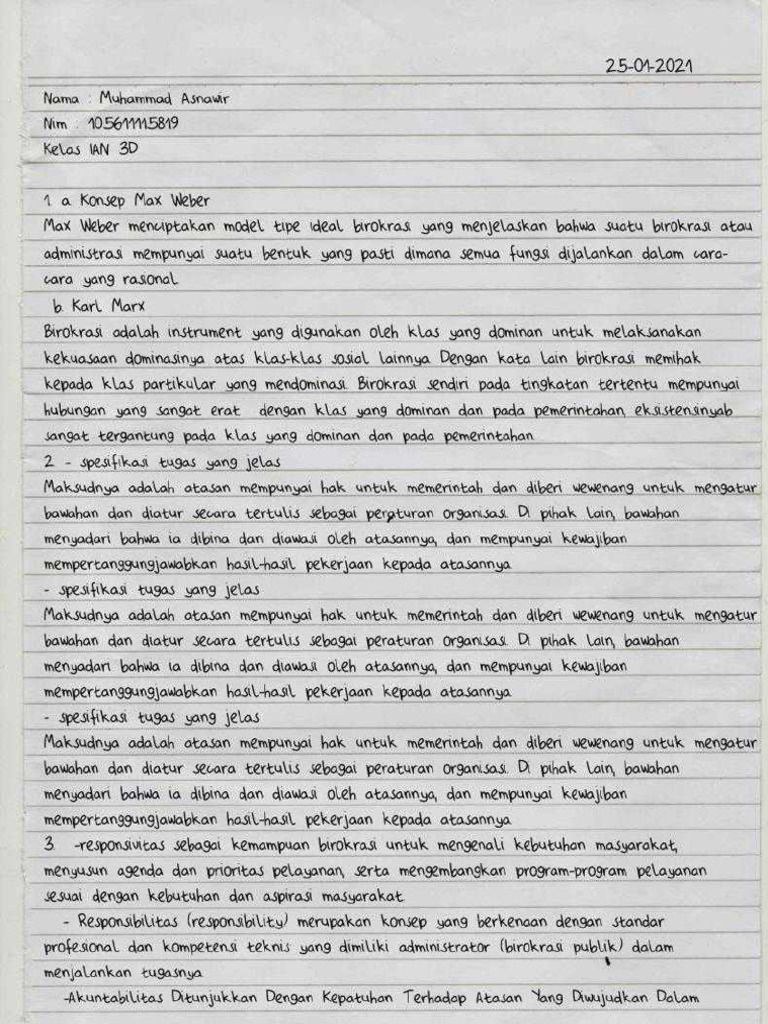 25-01-2021
Nama : Muhammad Asnawir
Nim : 105611115819
Kelas IAN 3D
1. a Konsep Max Weber
Max Weber menciptakan model tipe ideal birokrasi yang menjelaskan bahwa suatu birokrasi atau
administrasi mempunyai suatu bentuk yang pasti dimana semua fungsi dijalankan dalam cara-
cara yang rasional
b. Karl Marx
Birokrasi adalah instrument yang digunakan oleh klas yang dominan untuk melaksanakan
kekuasaan dominasinya atas klas-klas sosial lainnya Dengan kata lain birokrasi memihak
kepada klas partikular yang mendominasi. Birokrasi sendiri pada tingkatan tertentu mempunyai
hubungan yang sangat erat dengan klas yang dominan dan pada pemerintahan, eksistensinyab
sangat tergantung pada klas yang dominan dan pada pemerintahan
2 - spesifikasi tugas yang jelas
Maksudnya adalah atasan mempunyai hak untuk memerintah dan diberi wewenang untuk mengatur
bawahan dan diatur secara tertulis sebagai peraturan organisasi. Di pihak lain, bawahan
menyadari bahwa ia dibina dan diawasi oleh atasannya, dan mempunyai kewajiban
mempertanggungjawabkan hasil-hasil pekerjaan kepada atasannya
- spesifikasi tugas yang jelas
Maksudnya adalah atasan mempunyai hak untuk memerintah dan diberi wewenang untuk mengatur
bawahan dan diatur secara tertulis sebagai peraturan organisasi. Di pihak lain, bawahan
menyadari bahwa ia dibina dan diawasi oleh atasannya, dan mempunyai kewajiban
mempertanggungjawabkan hasil-hasil pekerjaan kepada atasannya
- spesifikasi tugas yang jelas
Maksudnya adalah atasan mempunyai hak untuk memerintah dan diberi wewenang untuk mengatur
bawahan dan diatur secara tertulis sebagai peraturan organisasi. Di pihak lain, bawahan
menyadari bahwa ia dibina dan diawasi oleh atasannya, dan mempunyai kewajiban
mempertanggungjawabkan hasil-hasil pekerjaan kepada atasannya
3. -responsivitas sebagai kemampuan birokrasi untuk mengenali kebutuhan masyarakat,
menyusun agenda dan prioritas pelayanan, serta mengembangkan program-program pelayanan
sesuai dengan kebutuhan dan aspirasi masyarakat
- Responsibilitas (responsibility) merupakan konsep yang berkenaan dengan standar
profesional dan kompetensi teknis yang dimiliki administrator (birokrasi publik) dalam
menjalankan tugasnya
-Akuntabilitas Ditunjukkan Dengan Kepatuhan Terhadap Atasan Yang Diwujudkan Dalam